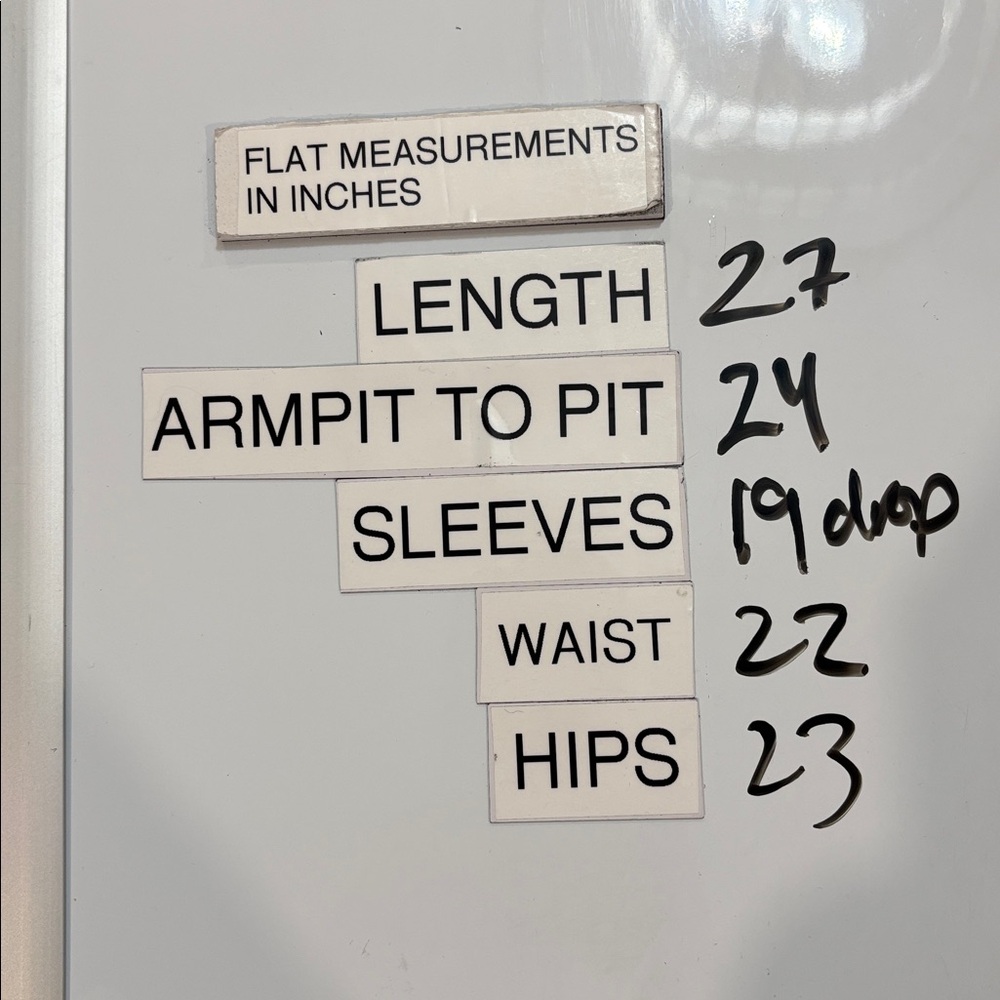 FLAT MEASUREMENTS
IN INCHES
LENGTH 27
ARMPIT TO PIT 24
SLEEVES 19 drop
WAIST 22
HIPS 23